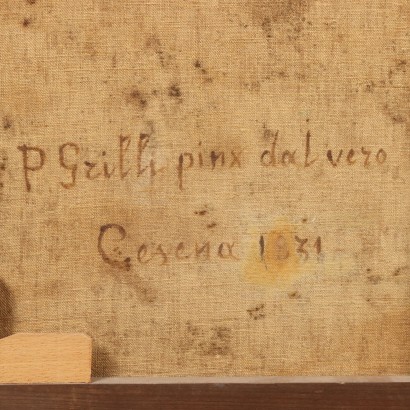 P Grilli pinx dal vero
Cesena 1831